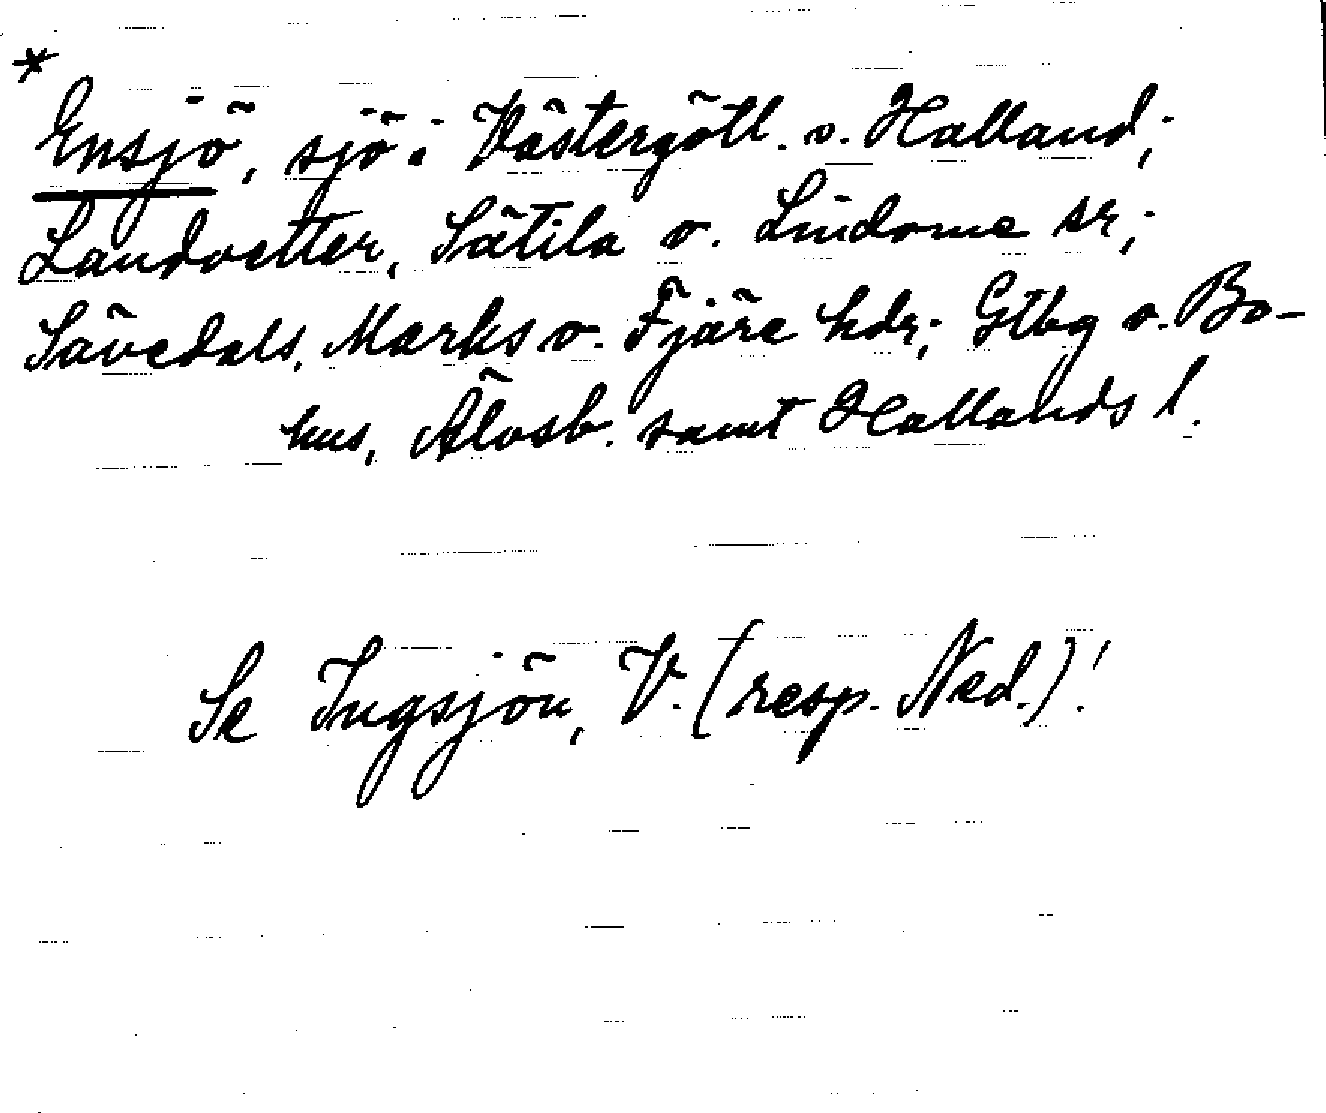 *
Ensjö, sjö i Västergötl. o. Halland;
Landvetter, Sätila o. Lindome sr;
Sävedals, Marks o. Fjäre hdr; Gtbg o. Bo-
hus, Älvsb. samt Hallands l.
Se Ingsjön, V. (resp. Ned.)!